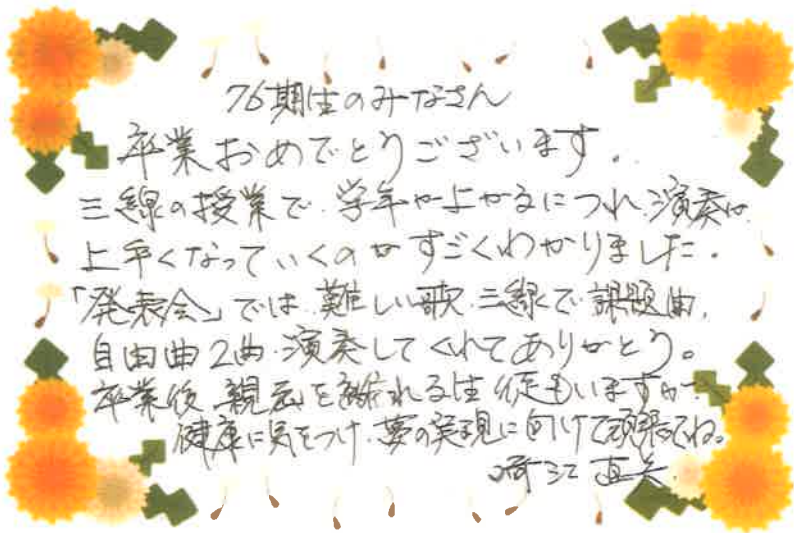 76期生のみなさん
卒業おめでとうございます。
三線の授業で、学年が上がるにつれ、演奏が
上手くなっていくのがすごくわかりました。
「発表会」では、難しい歌、三線で課題曲、
自由曲2曲、演奏してくれてありがとう。
卒業後、親元を離れる生徒もいますが、
健康に気をつけ、夢の実現に向けて頑張ってね。
崎江 直美